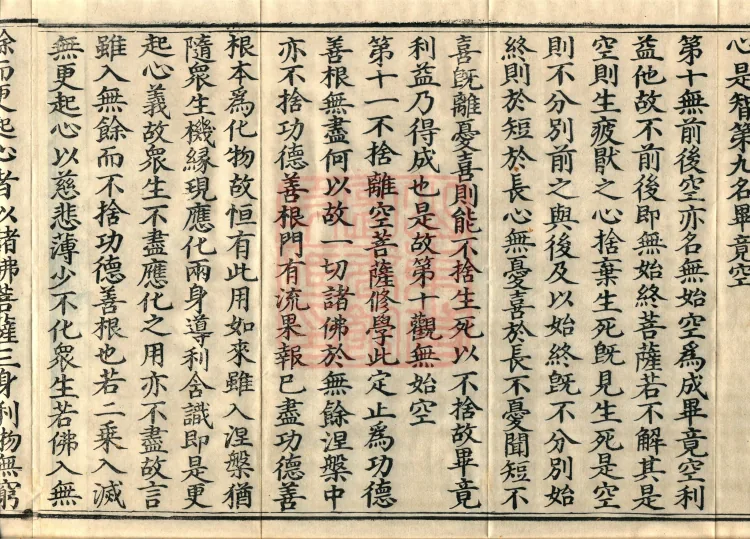 心是智第九名畢竟空
第十無前後空亦名無始空爲成畢竟空利
益他故不前後即無始終菩薩若不解其是
空則生疲猒之心捨棄生死旣見生死是空
則不分別前之與後及以始終旣不分別始
終則於短於長心無憂喜於長不憂聞短不
喜旣離憂喜則能不捨生死以不捨故畢竟
利益乃得成也是故第十觀無始空
第十一不捨離空菩薩修學此定止爲功德
善根無盡何以故一切諸佛於無餘涅槃中
亦不捨功德善根門有流果報已盡功德善
根本爲化物故恒有此用如來雖入涅槃猶
隨衆生機緣現應化兩身導利含識即是更
起心義故衆生不盡應化之用亦不盡故言
雖入無餘而不捨功德善根也若二乘入滅
無更起心以慈悲薄少不化衆生若佛入無
餘而更起心者以諸佛菩薩三身利物無窮